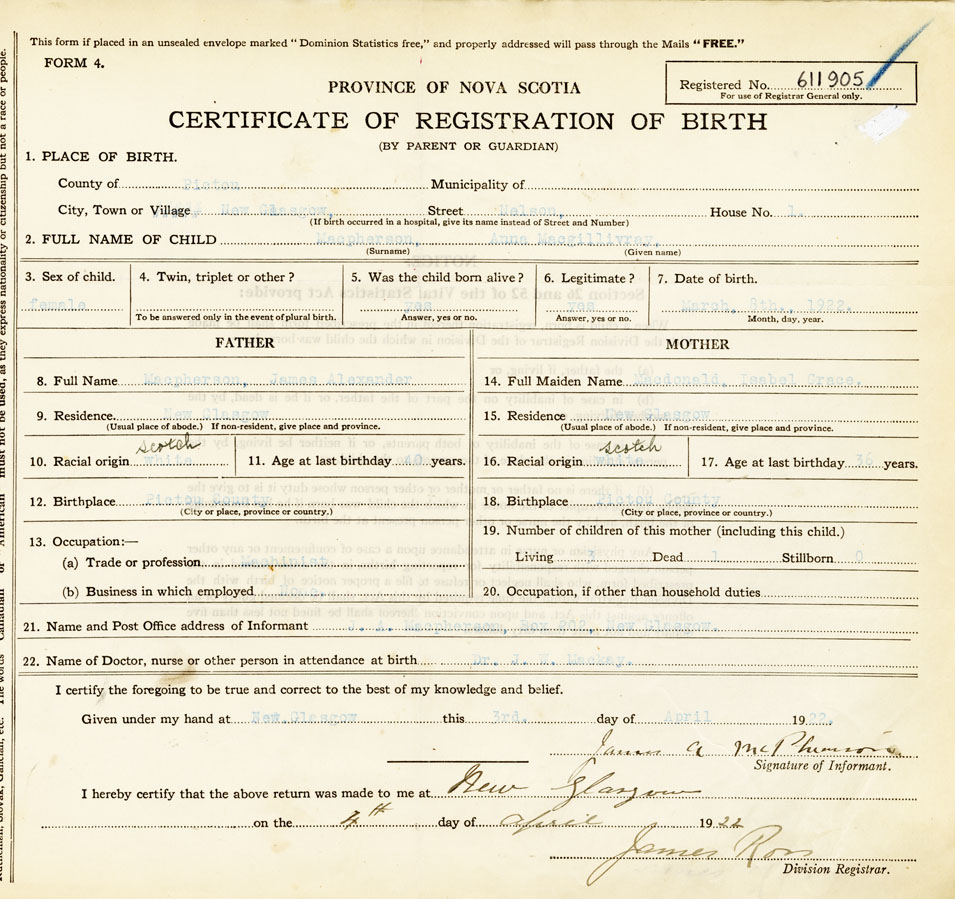 This form if placed in an unsealed envelope marked "Dominion Statistics free," and properly addressed will pass through the Mails "FREE."
FORM 4.
Registered No. 611905
For use of Registrar General only.
PROVINCE OF NOVA SCOTIA
CERTIFICATE OF REGISTRATION OF BIRTH
(BY PARENT OR GUARDIAN)
1. PLACE OF BIRTH.
County of Pictou Municipality of
City, Town or Village New Glasgow, Street Nelson, House No. 1.
(If birth occurred in a hospital, give its name instead of Street and Number)
2. FULL NAME OF CHILD Macpherson, Anna Macgillivray,
(Surname) (Given name)
3. Sex of child. 4. Twin, triplet or other? 5. Was the child born alive? 6. Legitimate? 7. Date of birth.
female yes yes March, 8th., 1922.
To be answered only in the event of plural birth. Answer, yes or no. Answer, yes or no. Month, day, year.
FATHER MOTHER
8. Full Name Macpherson, James Alexander 14. Full Maiden Name Macdonald, Isabel Grace,
9. Residence New Glasgow 15. Residence New Glasgow
(Usual place of abode.) If non-resident, give place and province. (Usual place of abode.) If non-resident, give place and province.
scotch scotch
10. Racial origin white 11. Age at last birthday 40 years. 16. Racial origin white 17. Age at last birthday 36 years.
12. Birthplace Pictou County 18. Birthplace Pictou County
(City or place, province or country.) (City or place, province or country.)
19. Number of children of this mother (including this child.)
13. Occupation:—
(a) Trade or profession Machinist Living 3 Dead 1 Stillborn 0
(b) Business in which employed 20. Occupation, if other than household duties
21. Name and Post Office address of Informant J. A. Macpherson, Box 202, New Glasgow.
22. Name of Doctor, nurse or other person in attendance at birth Dr. J. W. Mackay.
I certify the foregoing to be true and correct to the best of my knowledge and belief.
Given under my hand at New Glasgow this 3rd. day of April 1922.
James A McPherson
Signature of Informant.
I hereby certify that the above return was made to me at New Glasgow
on the 4th day of April 1922
James Ross
Division Registrar.
must not be used, as they express nationality or citizenship but not a race or people.